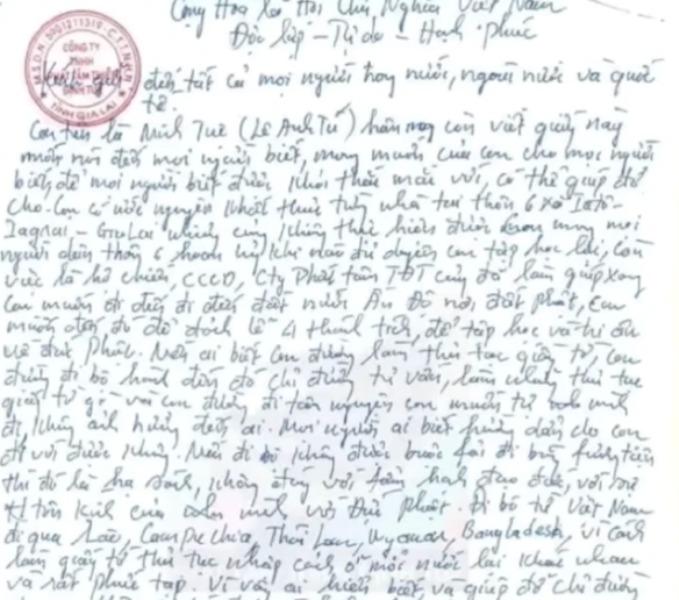 Cộng Hòa Xã Hội Chủ Nghĩa Việt Nam
Độc lập – Tự do – Hạnh Phúc
M.S.D.N CÔNG TY TNHH TỈNH GIA LAI
Kính gửi đến tất cả mọi người trong nước, ngoài nước và quốc
tế.
Con tên là Minh Tuệ (Lê Anh Tú) hôm nay con viết giấy này
muốn nói đến mọi người biết, mong muốn của con cho mọi người
biết, để mọi người biết được khỏi thắc mắc với, có thể giúp đỡ
cho. Con có ước nguyện khất thực từng nhà tại thôn 6 xã
Iagrai – Gia Lai nhưng cũng không thực hiện được mong mọi
người dân thôn 6 hoan hỷ khi nào đủ duyên con tập học lại, còn
việc là hộ chiếu, CCCD, Cty cũng đã làm giúp xong
con muốn đi đến đất nước Ấn Độ nơi đất phật, con
muốn đến đó để đảnh lễ 4 thánh tích, để tập học và tri ân
về đức Phật. Nếu ai biết con đường làm thủ tục giấy tờ, con
đường đi bộ hành đến đó chỉ đường tư vấn, làm những thủ tục
giấy tờ gì với con đường đi tâm nguyện con muốn tự mình
đi không ảnh hưởng đến ai. Mọi người ai biết hướng dẫn cho con
đi với được không. Nếu đi bộ không được buộc phải đi bằng phương tiện
thì đó là không đúng với tâm hạnh đạo đức, với sự
tôn kính của mình với Đức Phật. Đi bộ từ Việt Nam
đi qua Lào, Campuchia, Thái Lan, Myanmar, Bangladesh, vì cách
làm giấy tờ thủ tục nhập cảnh ở mỗi nước lại khác nhau
và rất phức tạp. Vì vậy ai hiểu biết, và giúp đỡ chỉ đường